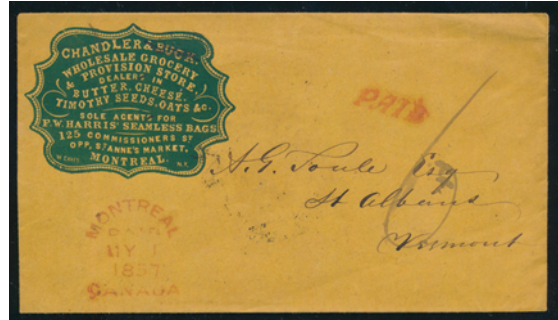 CHANDLER & BUCK,
WHOLESALE GROCERY
& PROVISION STORE,
DEALERS IN
BUTTER, CHEESE,
TIMOTHY SEEDS, OATS &C.
SOLE AGENTS FOR
F.W. HARRIS' SEAMLESS BAGS
125 COMMISSIONERS ST
OPP. ST ANNE'S MARKET,
MONTREAL.
N.Y.
PAID
A. G. Soule Esq
St Albans
Vermont
MONTREAL
PAID
MY 1
1857
CANADA